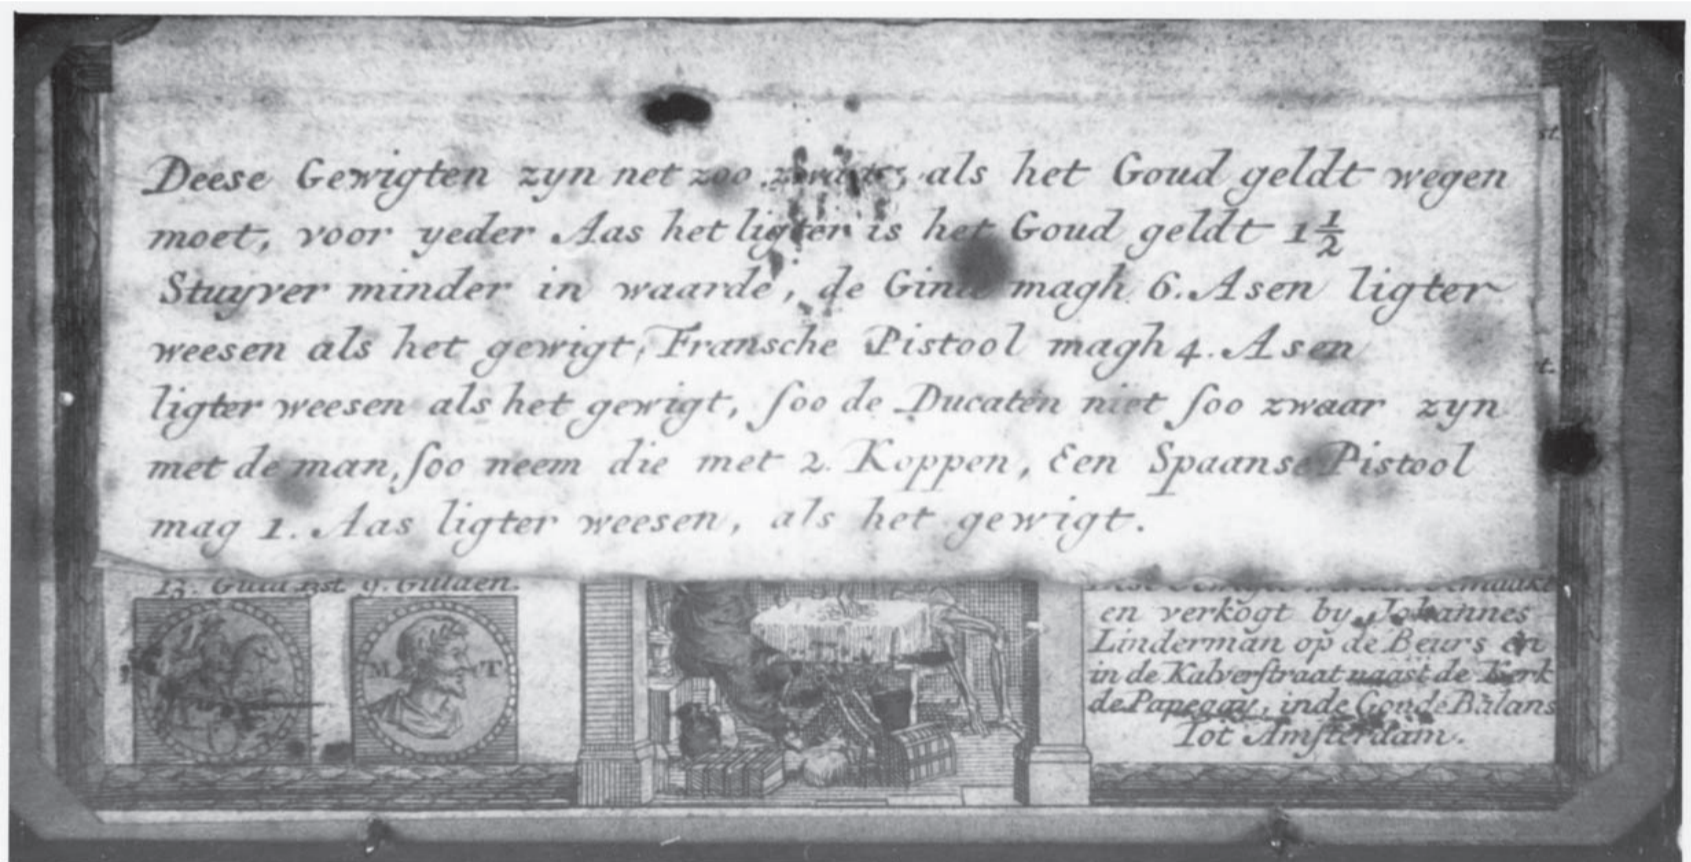 Deese Gewigten zyn net zoo zwaar, als het Goud geldt wegen
moet, voor yeder Aas het ligter is het Goud geldt 1 1/2
Stuyver minder in waarde, de magh 6. Asen ligter
weesen als het gewigt, Fransche Pistool magh 4. Asen
ligter weesen als het gewigt, ſoo de Ducaten niet ſoo zwaar zyn
met de man, ſoo neem die met 2. Koppen, Een Spaanse Pistool
mag 1. Aas ligter weesen, als het gewigt.
st.
t.
13. Guld 9. Gulden.
M T
en verkogt by Johannes
Linderman op de Beurs en
in de Kalverſtraat naast de Kerk
de Papegay, in de Goude Balans
Tot Amſterdam.